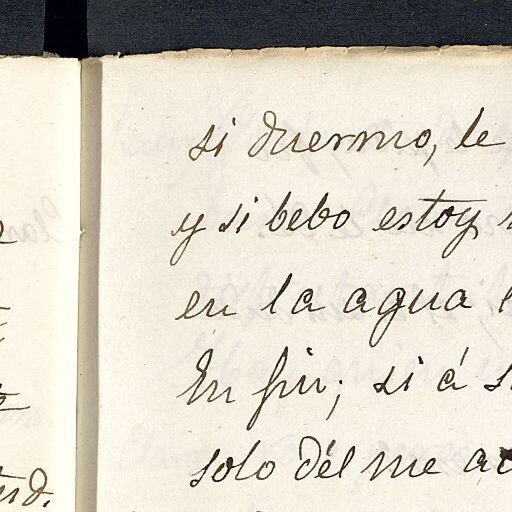 si duermo, le
y si bebo estoy
en la agua
En fin; si á
solo dél me